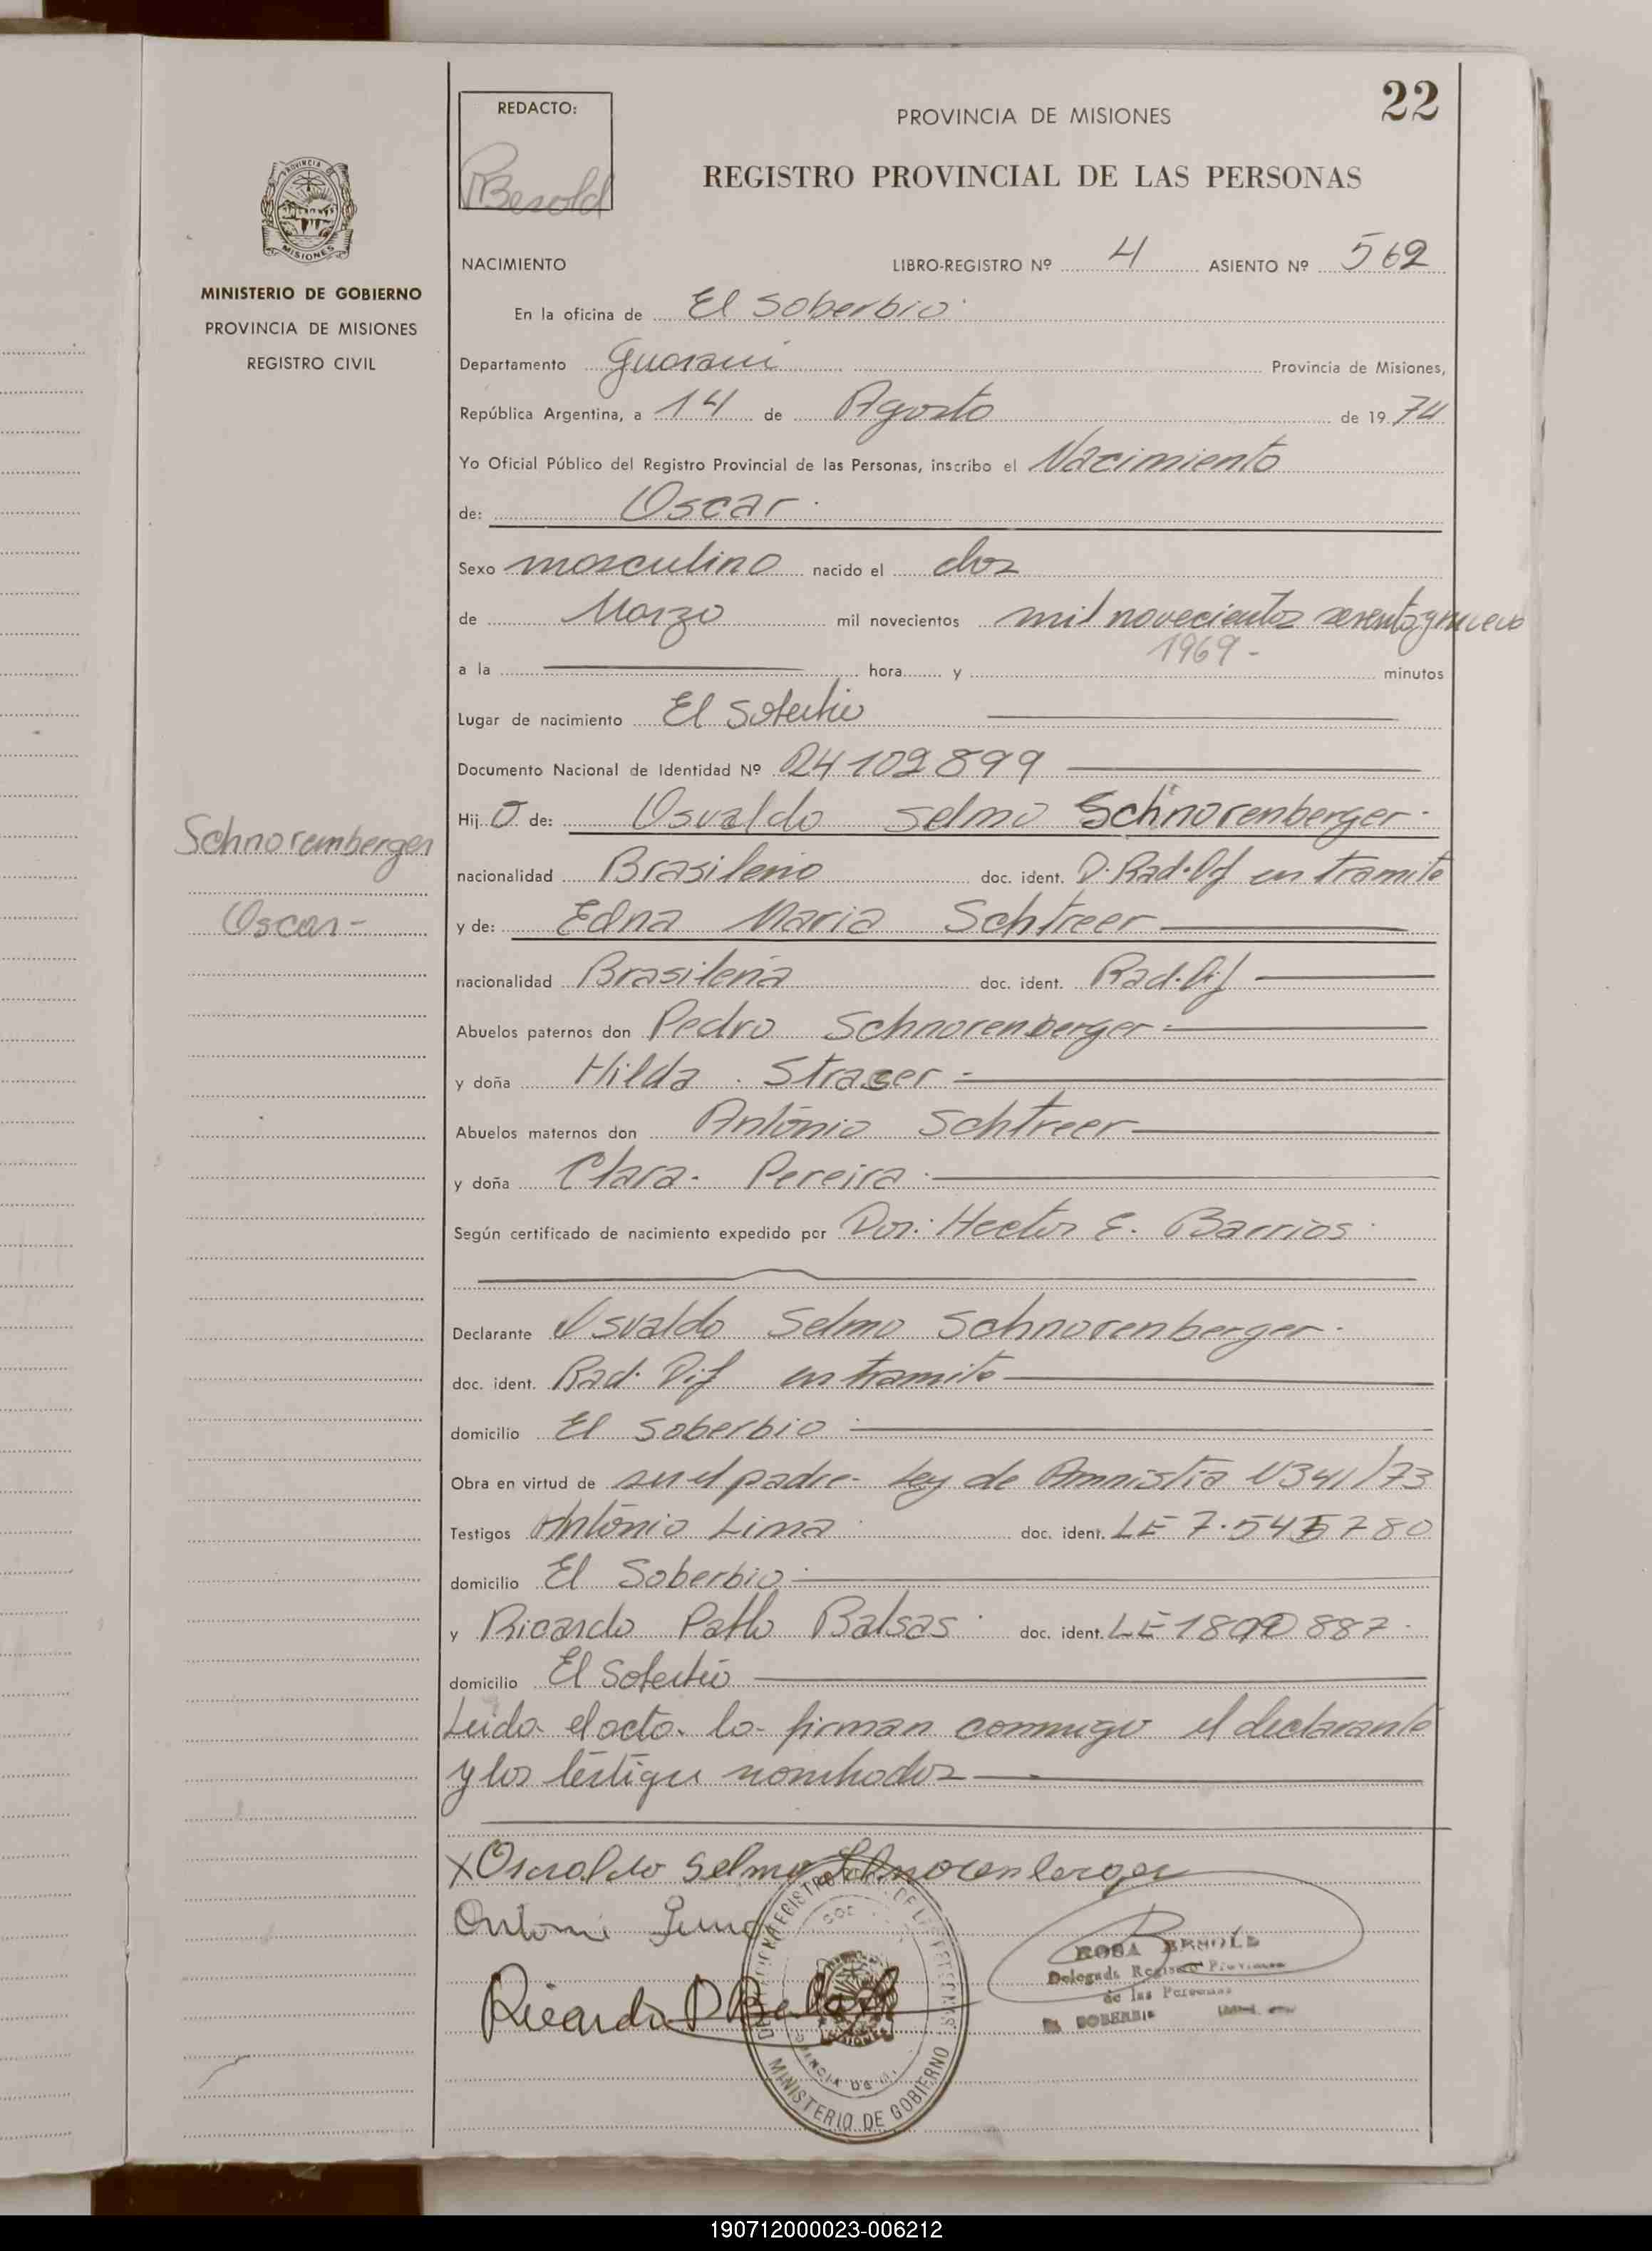 22
REDACTO:
Besold
PROVINCIA DE MISIONES
REGISTRO PROVINCIAL DE LAS PERSONAS
MINISTERIO DE GOBIERNO
PROVINCIA DE MISIONES
REGISTRO CIVIL
NACIMIENTO LIBRO-REGISTRO Nº 4 ASIENTO Nº 562
En la oficina de El Soberbio
Departamento Guarani Provincia de Misiones,
República Argentina, a 14 de Agosto de 1974
Yo Oficial Público del Registro Provincial de las Personas, inscribo el Nacimiento
de: Oscar
Sexo masculino nacido el dos
de Marzo mil novecientos mil novecientos sesenta y nueve
1969-
a la hora y minutos
Lugar de nacimiento El Soberbio
Documento Nacional de Identidad Nº 24102899
Hijo de: Osvaldo Selmo Schnorenberger
Schnoremberger
nacionalidad Brasileño doc. ident. D. Rad. Dif en tramite
Oscar-
y de: Edna Maria Schtreer
nacionalidad Brasileña doc. ident. Rad. Dif
Abuelos paternos don Pedro Schnorenberger
y doña Hilda Straser
Abuelos maternos don António Schtreer
y doña Clara Pereira
Según certificado de nacimiento expedido por Dor: Hector E. Barrios
Declarante Osvaldo Selmo Schnorenberger
doc. ident. Rad. Dif en tramite
domicilio El Soberbio
Obra en virtud de ser el padre- Ley de Amnistia 11341/73
Testigos António Lima doc. ident. LE 7.545780
domicilio El Soberbio
y Ricardo Pablo Balsas doc. ident. LE 887
domicilio El Soberbio
Leida el acta la firman conmigo el declarante
y los testigos nombrados
X Osvaldo Selmo Schnorenberger
Antonio Lima
Ricardo P Balsas
MINISTERIO DE GOBIERNO
ROSA BESOLD
Delegada Registro Provincial
de las Personas
EL SOBERBIO
190712000023-006212